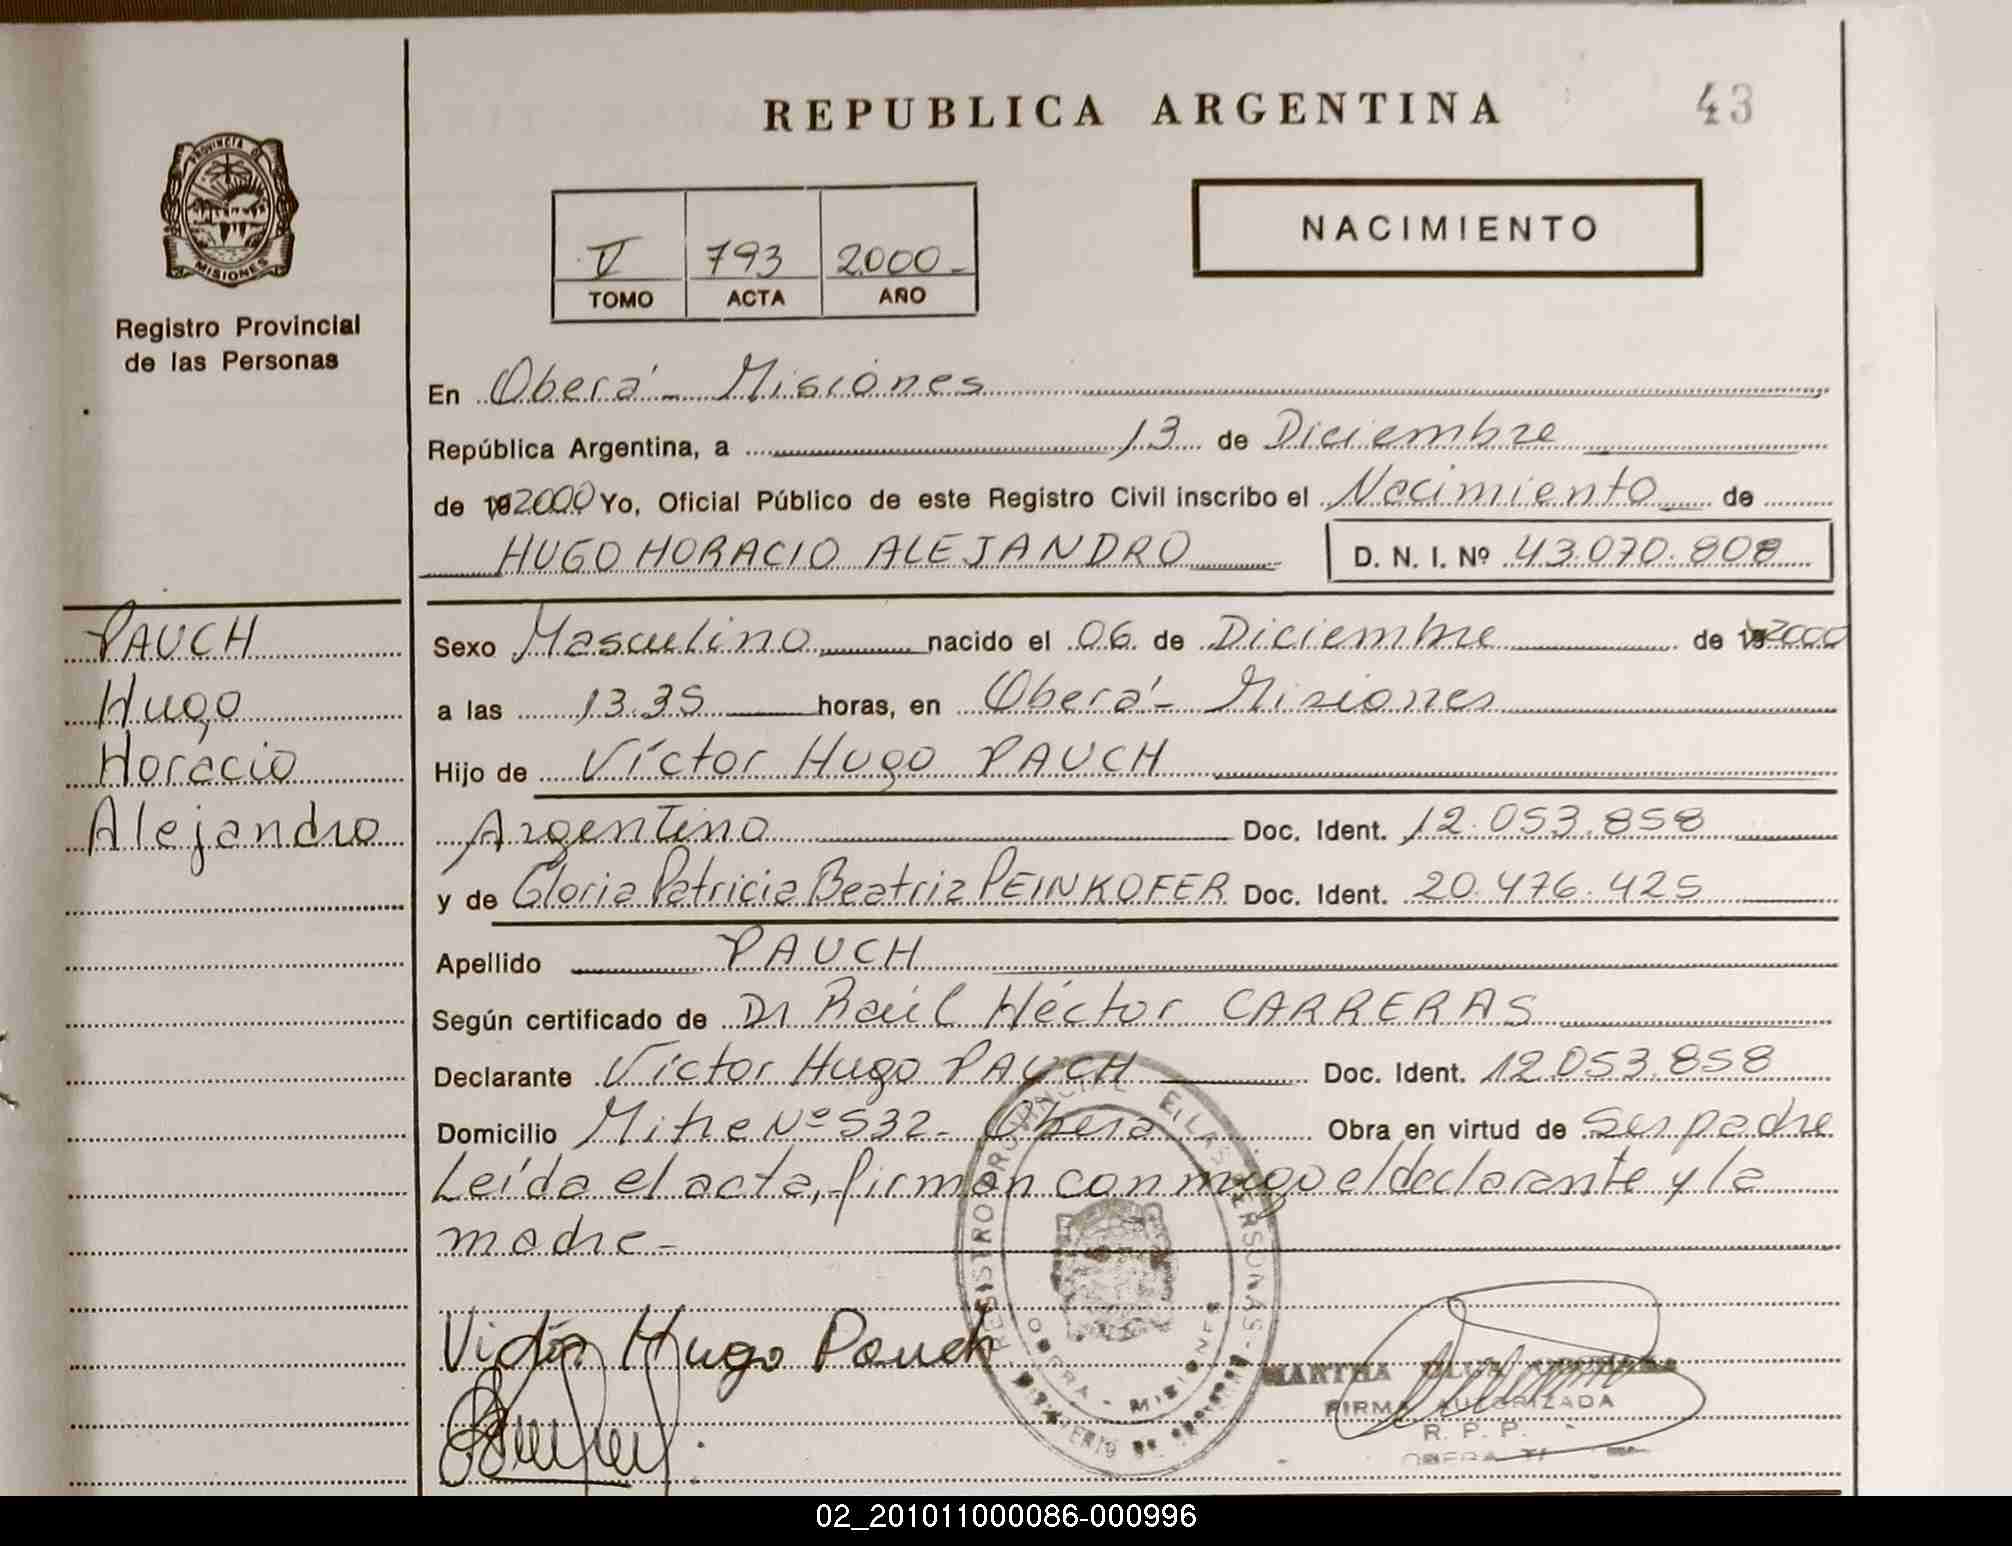 REPUBLICA ARGENTINA
43
PROVINCIA DE
MISIONES
Registro Provincial
de las Personas
NACIMIENTO
V 793 2000
TOMO ACTA AÑO
En Oberá - Misiones
República Argentina, a 13 de Diciembre
de 192000 Yo, Oficial Público de este Registro Civil inscribo el Nacimiento de
HUGO HORACIO ALEJANDRO D. N. I. Nº 43.070.808
PAUCH
Hugo
Horacio
Alejandro
Sexo Masculino nacido el 06 de Diciembre de 192000
a las 13.35 horas, en Oberá - Misiones
Hijo de Víctor Hugo PAUCH
Argentino Doc. Ident. 12.053.858
y de Gloria Patricia Beatriz PEINKOFER Doc. Ident. 20.476.425
Apellido PAUCH
Según certificado de Dr Raúl Héctor CARRERAS
Declarante Víctor Hugo PAUCH Doc. Ident. 12.053.858
Domicilio Mitre Nº 532 - Oberá Obra en virtud de Ser padre
Leída el acta, firman conmigo el declarante y la
madre -
REGISTRO PROVINCIAL DE LAS PERSONAS
OBERA - MISIONES
Victor Hugo Pauch
MARTHA
FIRMA AUTORIZADA
R. P. P.
OBERA
02_201011000086-000996